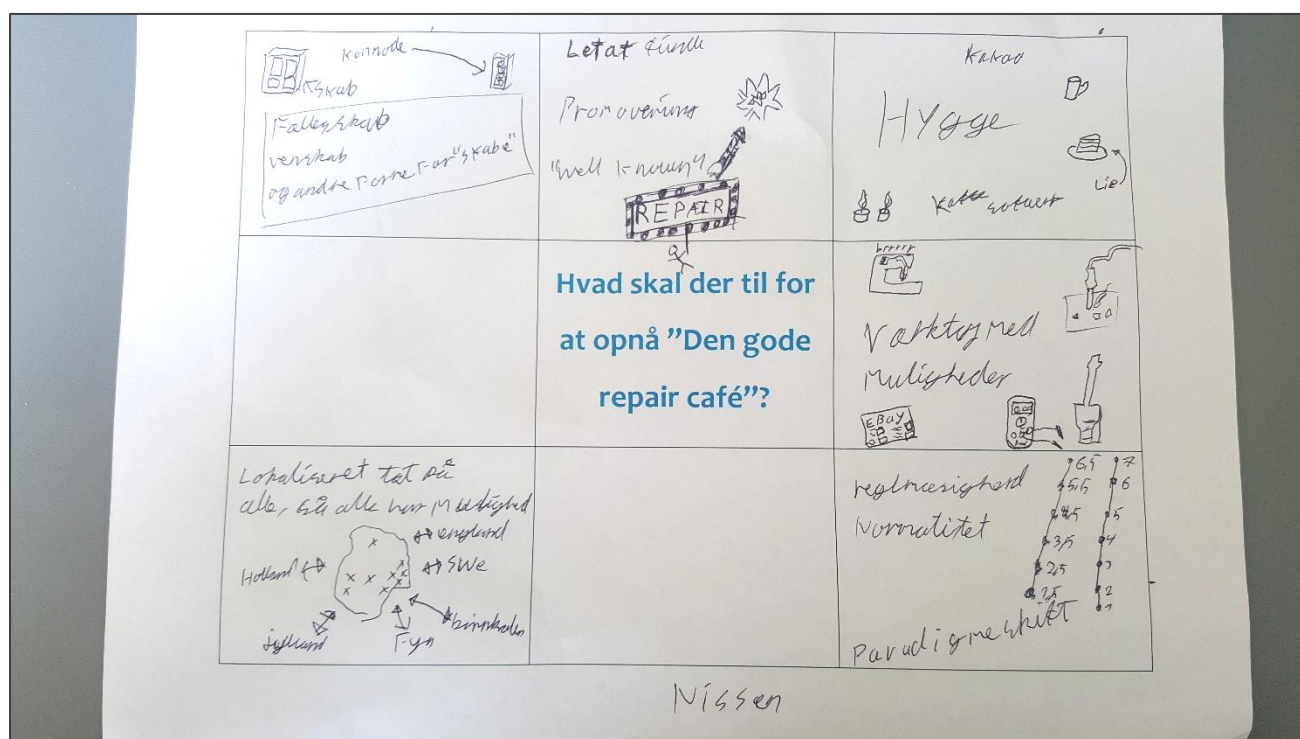 Komode
Skab
Fællesskab
venskab
og andre former for "skabe"
Let at finde
Promovering
"Well known"
REPAIR
Kakao
Hygge
Lie
brrrrr
Hvad skal der til for
at opnå "Den gode
repair café"?
Værktøj med
Muligheder
EBay
Lokaliseret tæt på
alle, så alle har Mulighed
england
Holland
SWe
jylland
Fyn
reglmæsighed
Normalitet
6,5
7
5,5
6
4,5
5
3,5
4
2,5
3
1,5
2
1
Paradigmeskift
Nissen